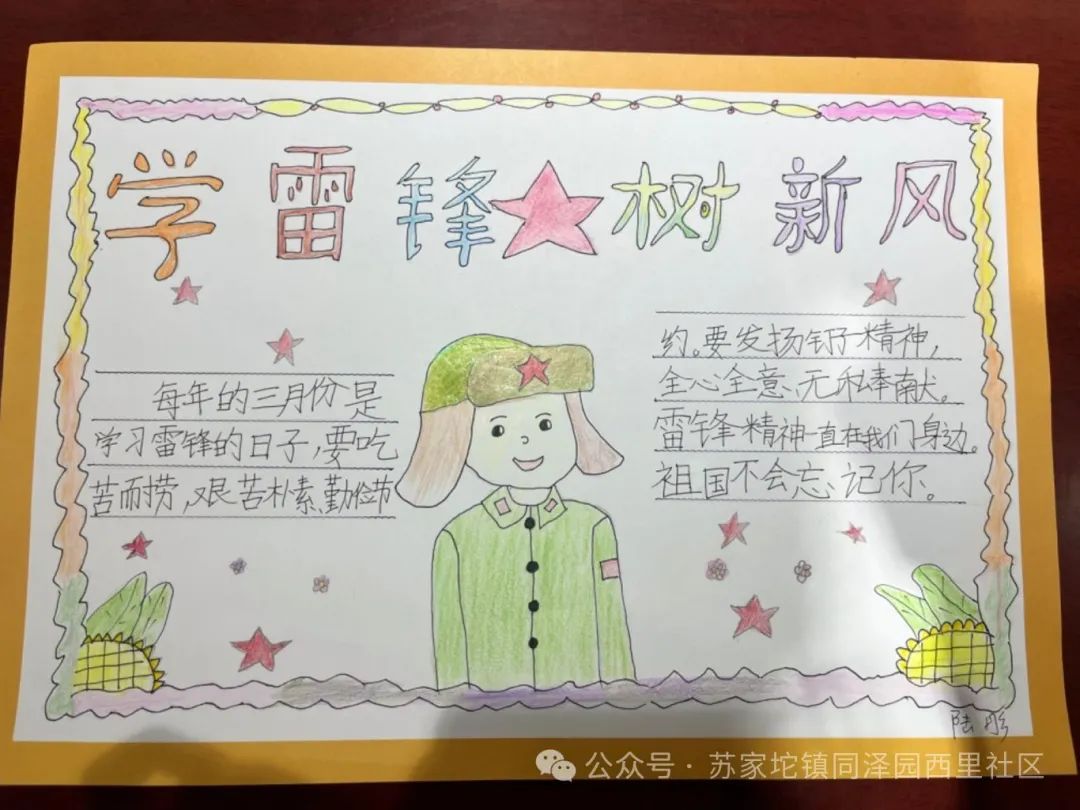 学雷锋树新风
每年的三月份是
学习雷锋的日子,要吃
苦而捞,艰苦朴素、勤俭节
约。要发扬钉子精神,
全心全意、无私奉献。
雷锋精神一直在我们身边。
祖国不会忘记你。
陆彤
公众号·苏家坨镇同泽园西里社区